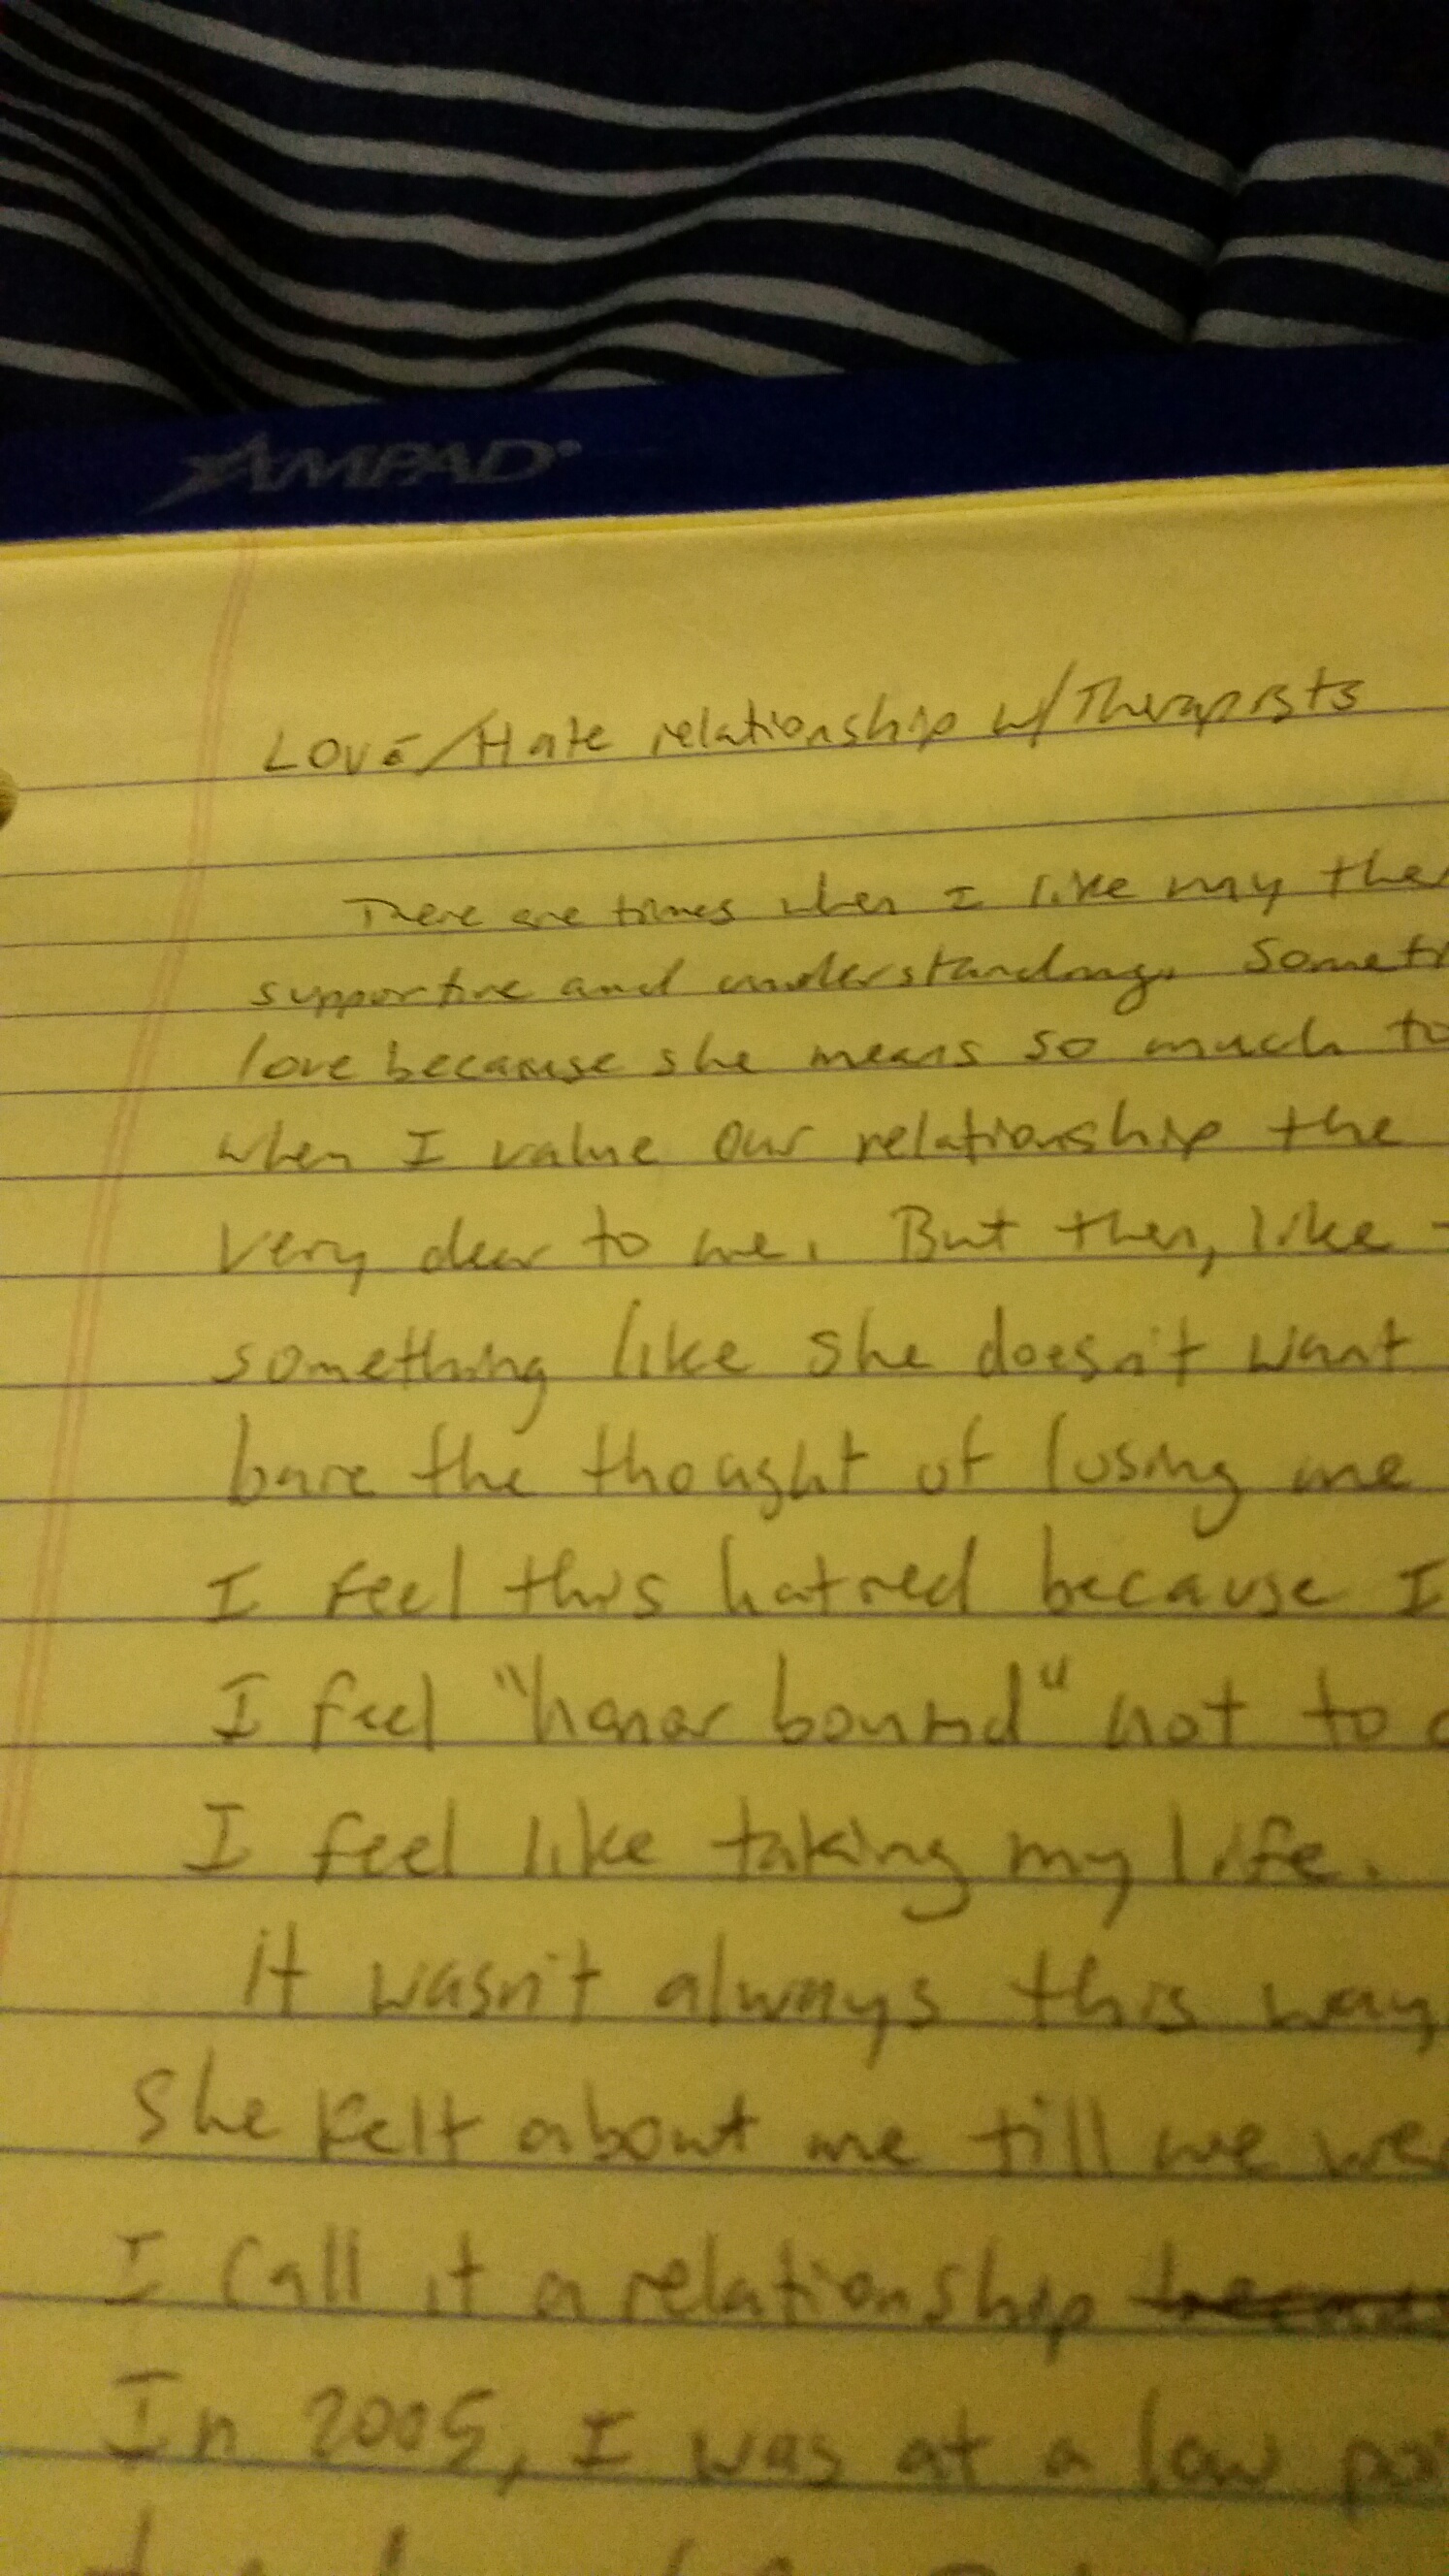 AMPAD
Love/Hate relationship w/Therapists
There are times when I like my
supportive and understanding.
love because she means so much to
when I value our relationship the
very dear to me. But then, like
something like she doesn't want
bare the thought of losing me
I feel this hatred because I
I feel "honor bound" not to
I feel like taking my life.
it wasn't always this way
she felt about me till we
I call it a relationship
In 2005, I was at a low